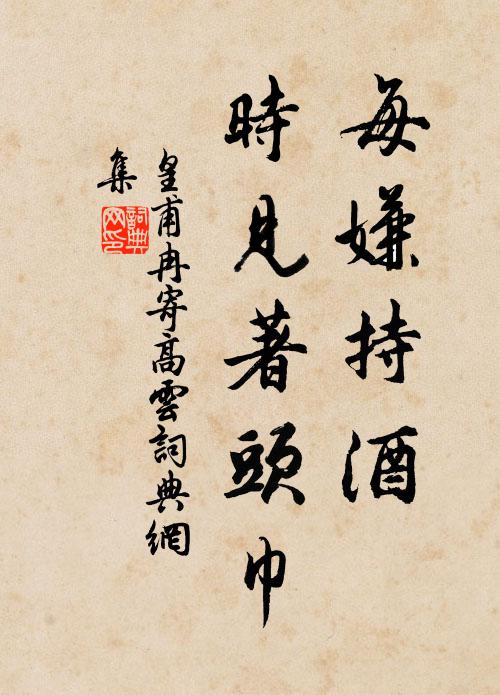 每嫌持酒
時見著頭巾
皇甫冉寄高雲詞典網
集
詞典
网印